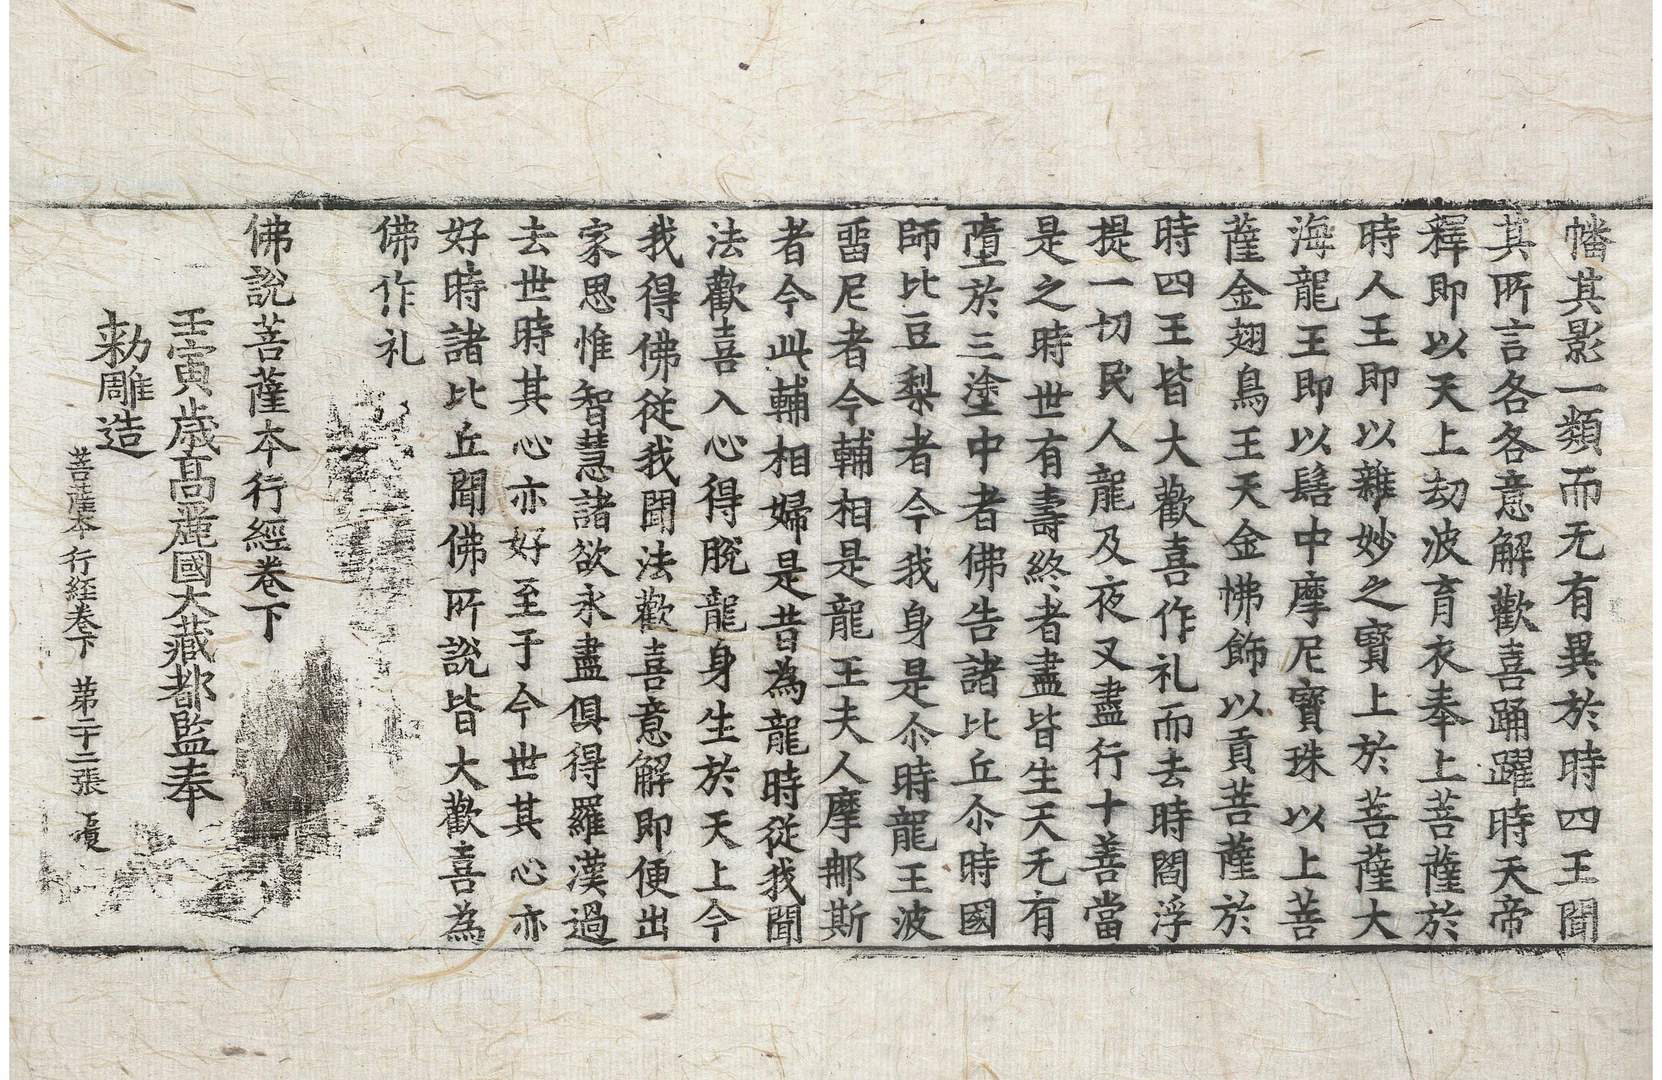 幡其影一類而无有異於時四王聞
其所言各各意解歡喜踊躍時天帝
釋即以天上劫波育衣奉上菩薩於
時人王即以雜妙之寶上於菩薩大
海龍王即以髻中摩尼寶珠以上菩
薩金翅鳥王天金怫飾以貢菩薩於
時四王皆大歡喜作礼而去時閻浮
提一切民人龍及夜叉盡行十善當
是之時世有壽終者盡皆生天无有
墮於三塗中者佛告諸比丘尒時國
師比豆梨者今我身是尒時龍王波
畱尼者今輔相是龍王夫人摩那斯
者今此輔相婦是昔為龍時從我聞
法歡喜入心得脫龍身生於天上今
我得佛從我聞法歡喜意解即便出
家思惟智慧諸欲永盡俱得羅漢過
去世時其心亦好至于今世其心亦
好時諸比丘聞佛所說皆大歡喜為
佛作礼
佛說菩薩本行經卷下
壬寅歲高麗國大藏都監奉
勑雕造
菩薩本行経卷下 第二十二張